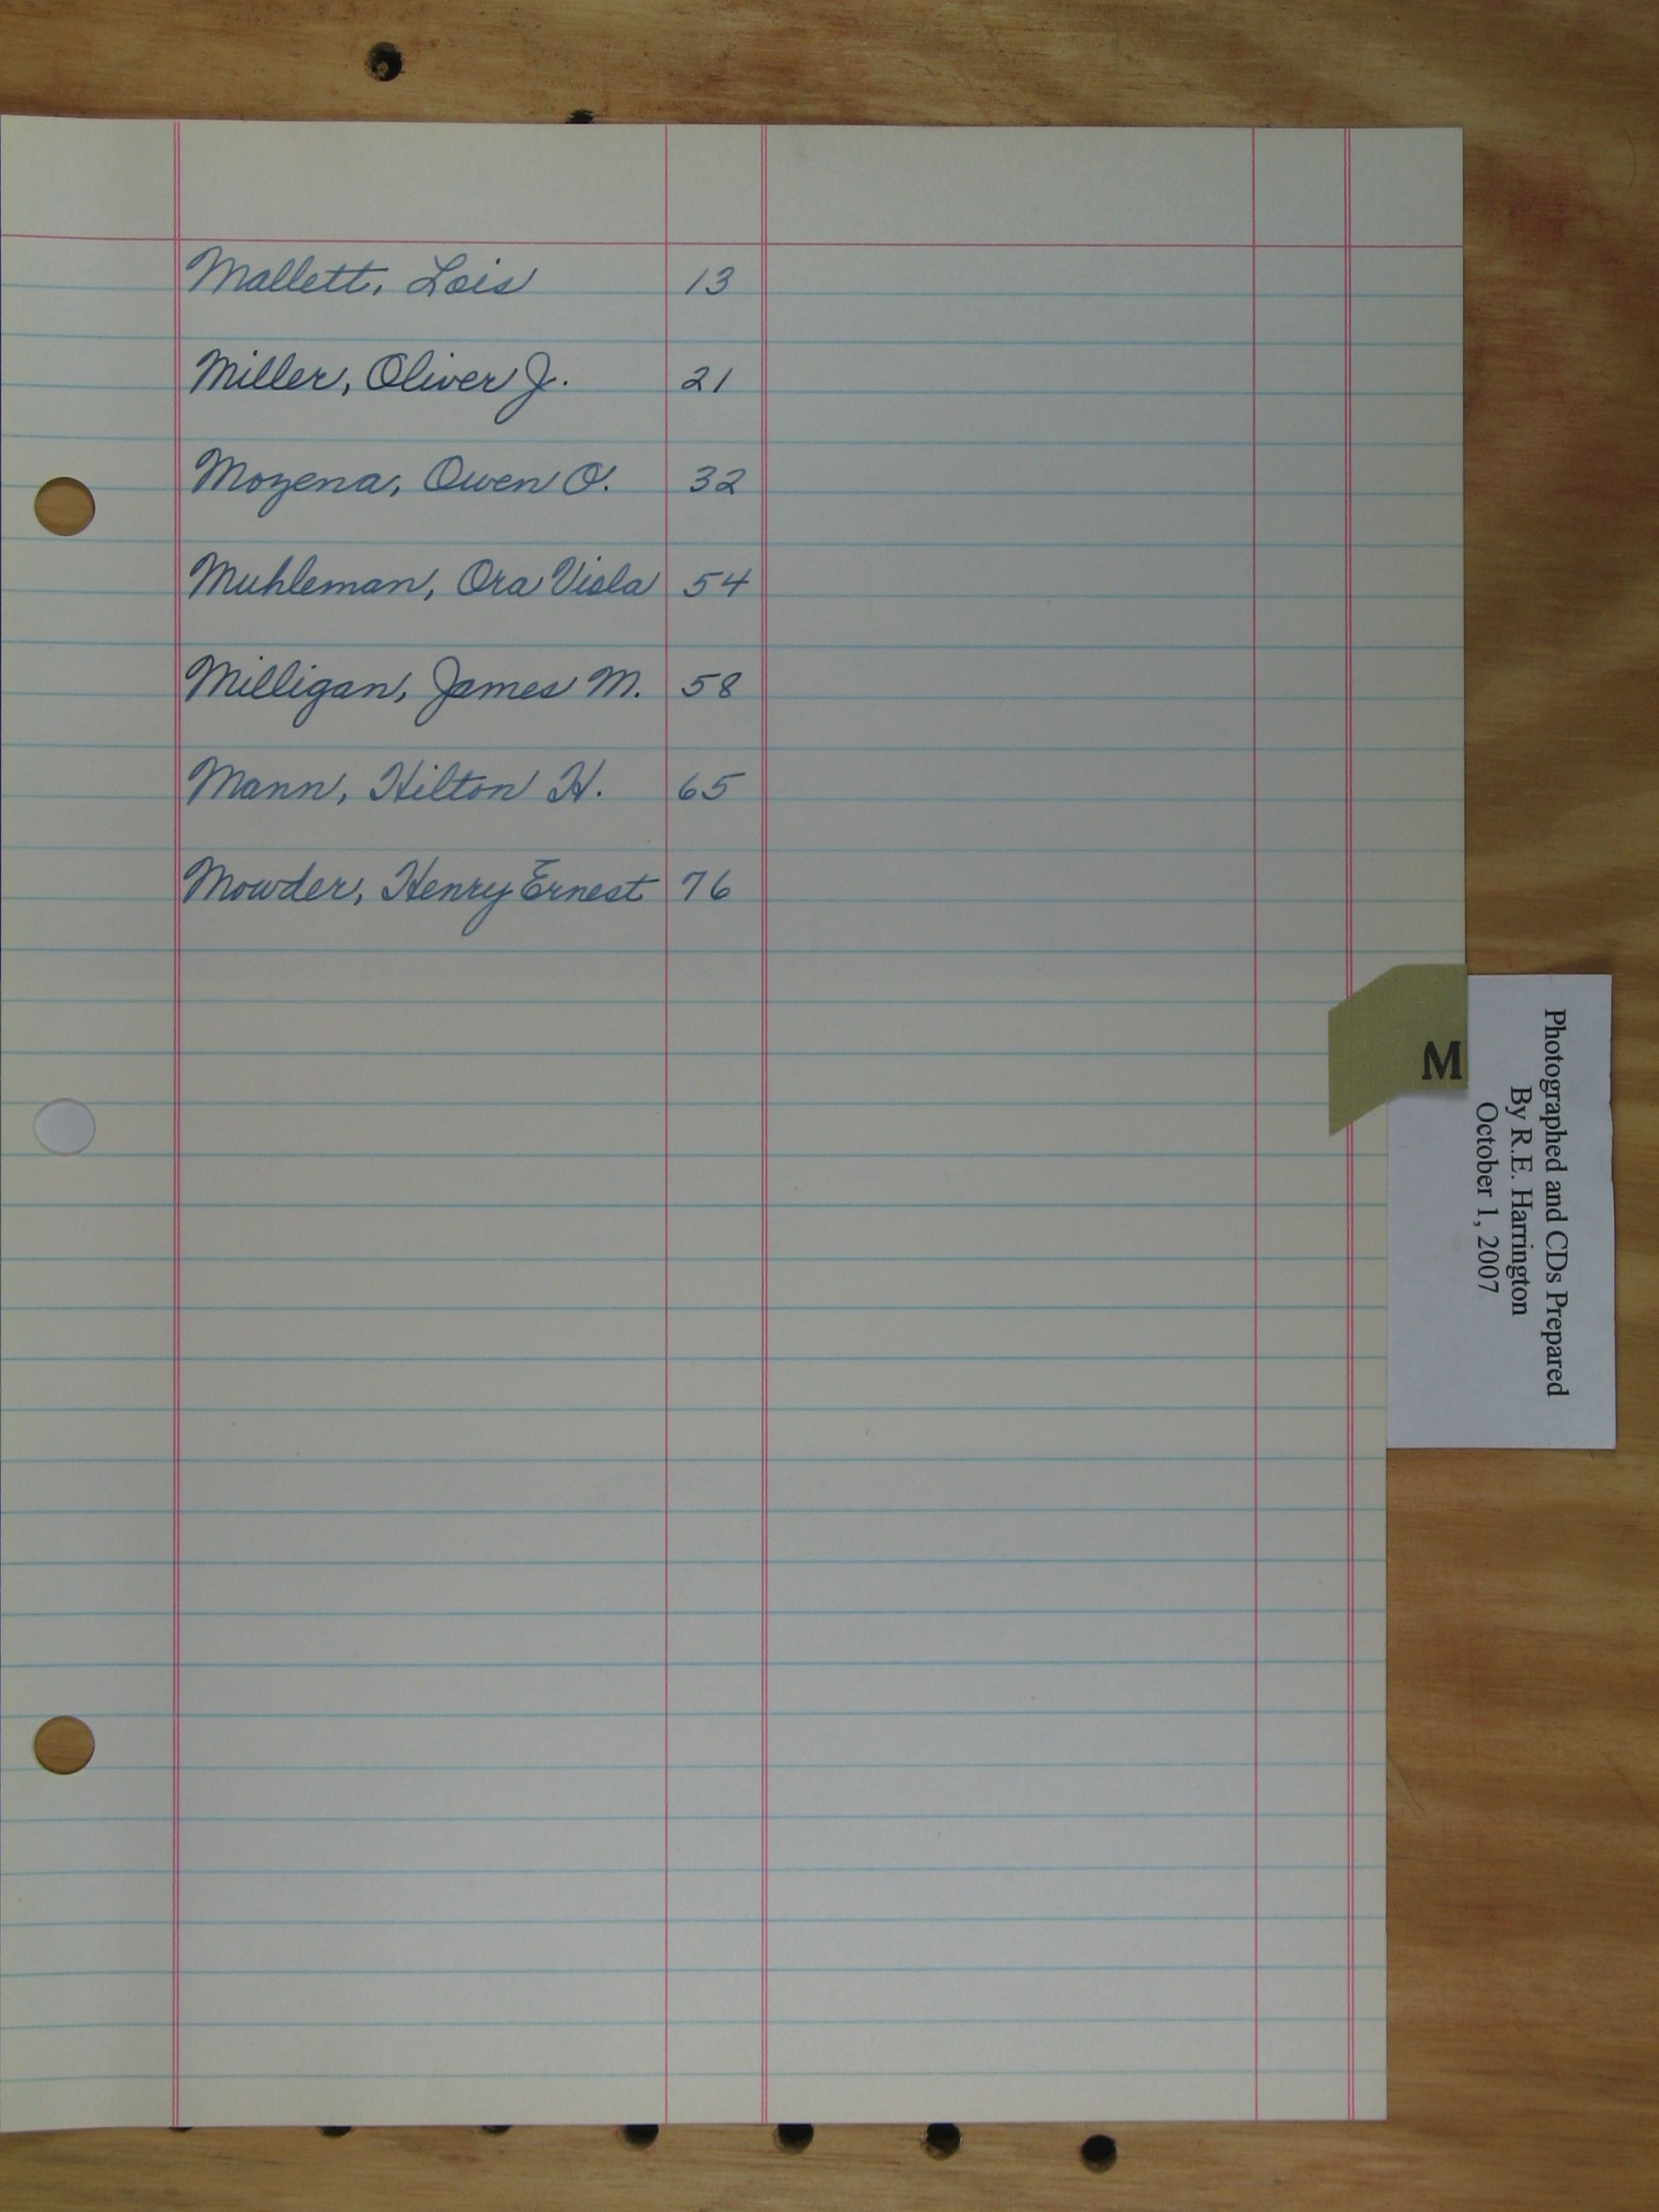 Mallett, Lois 13
Miller, Oliver J. 21
Mozena, Owen O. 32
Muhleman, Ora Viola 54
Milligan, James M. 58
Mann, Hilton H. 65
Mowder, Henry Ernest 76
M
Photographed and CDs Prepared
By R.E. Harrington
October 1, 2007